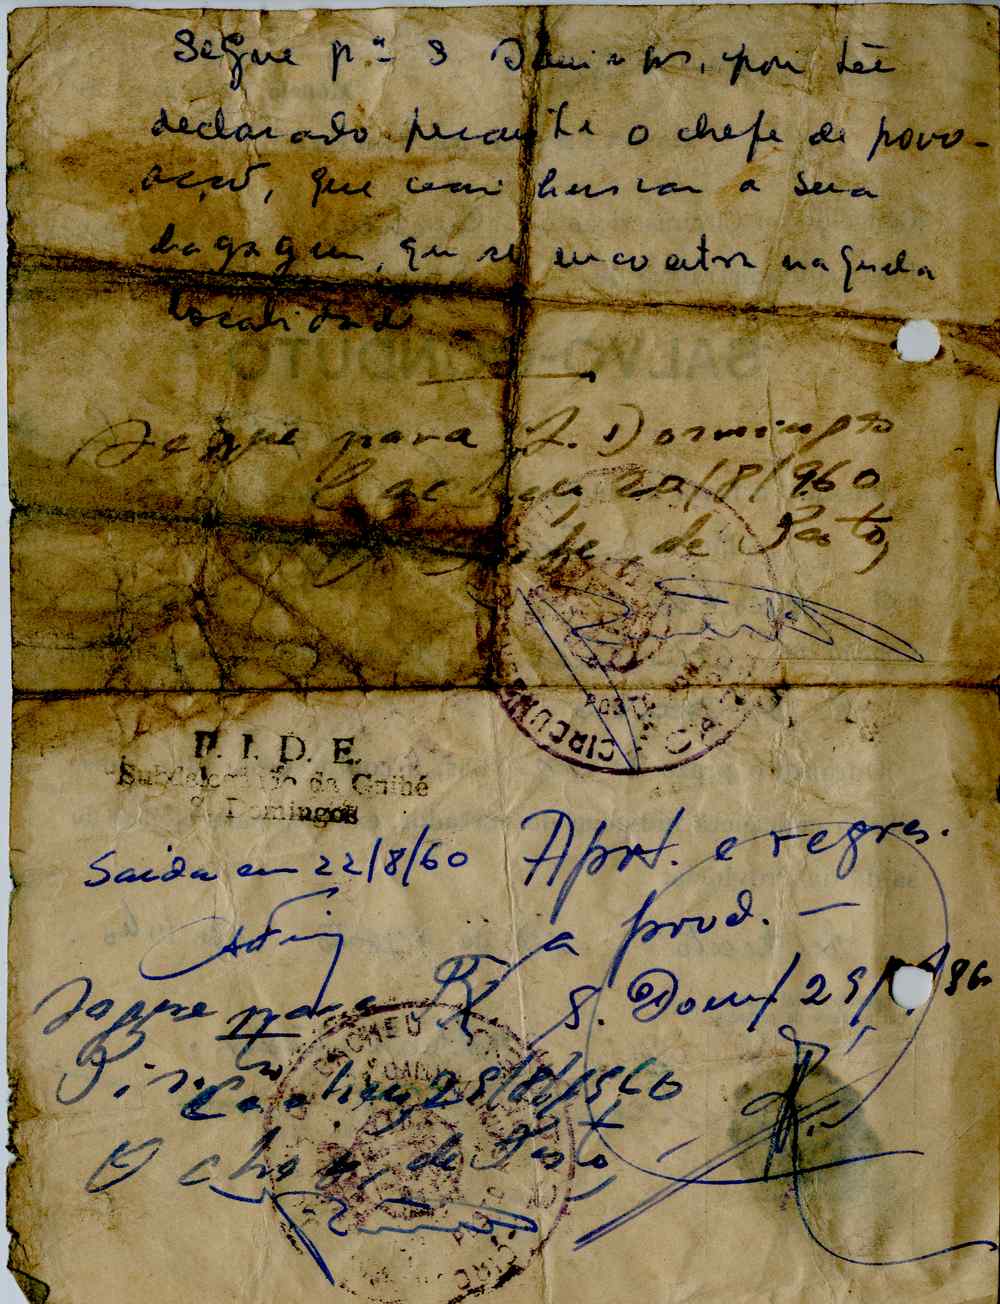 Segue p.ª S Domingos, por ter
declarado perante o chefe de povo-
ação, que vem buscar a sua
bagagem, que se encontra naquela
localidade
SALVO-CONDUTO
Segue para S. Domingos
Cacheu 20/8/960
O Chefe de Posto,
CIRCUN
P. I. D. E.
Subdelegação da Guiné
S. Domingos
Saída em 22/8/60
Apres. e regres.
a prod. —
S. Dom/ 29/
Segue para
Cacheu, 29/8/1960
O chefe de Posto
CACHEU